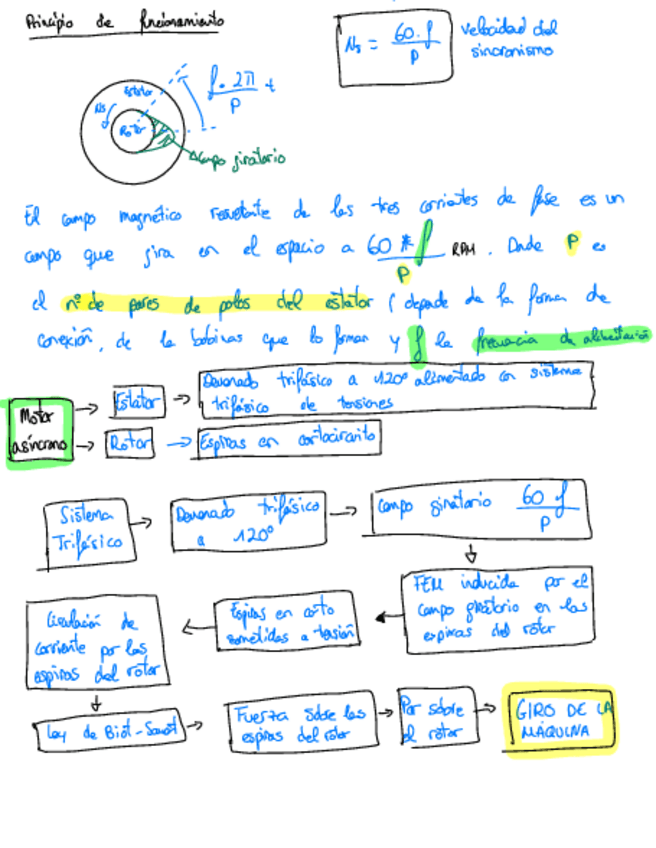 Principio de funcionamiento
Ns = 60.f / P
velocidad del
sincronismo
Estator
Ns
Rotor
f.2π / P t
Campo giratorio
El campo magnético resultante de las tres corrientes de fase es un
campo que gira en el espacio a 60 * f / P RPM. Donde P es
el nº de pares de polos del estator (depende de la forma de
conexión, de la bobinas que lo forman y f la frecuencia de alimentación
Motor
asíncrono
Estator
Devanado trifásico a 120º alimentado con sistema
trifásico de tensiones
Rotor
Espiras en cortocircuito
Sistema
Trifásico
Devanado trifásico
a 120º
Campo giratorio 60 f / P
FEM inducida por el
campo giratorio en las
espiras del rotor
Espiras en corto
sometidas a tensión
Circulación de
corriente por las
espiras del rotor
Ley de Biot-Savart
Fuerza sobre las
espiras del rotor
Par sobre
el rotor
GIRO DE LA
MÁQUINA